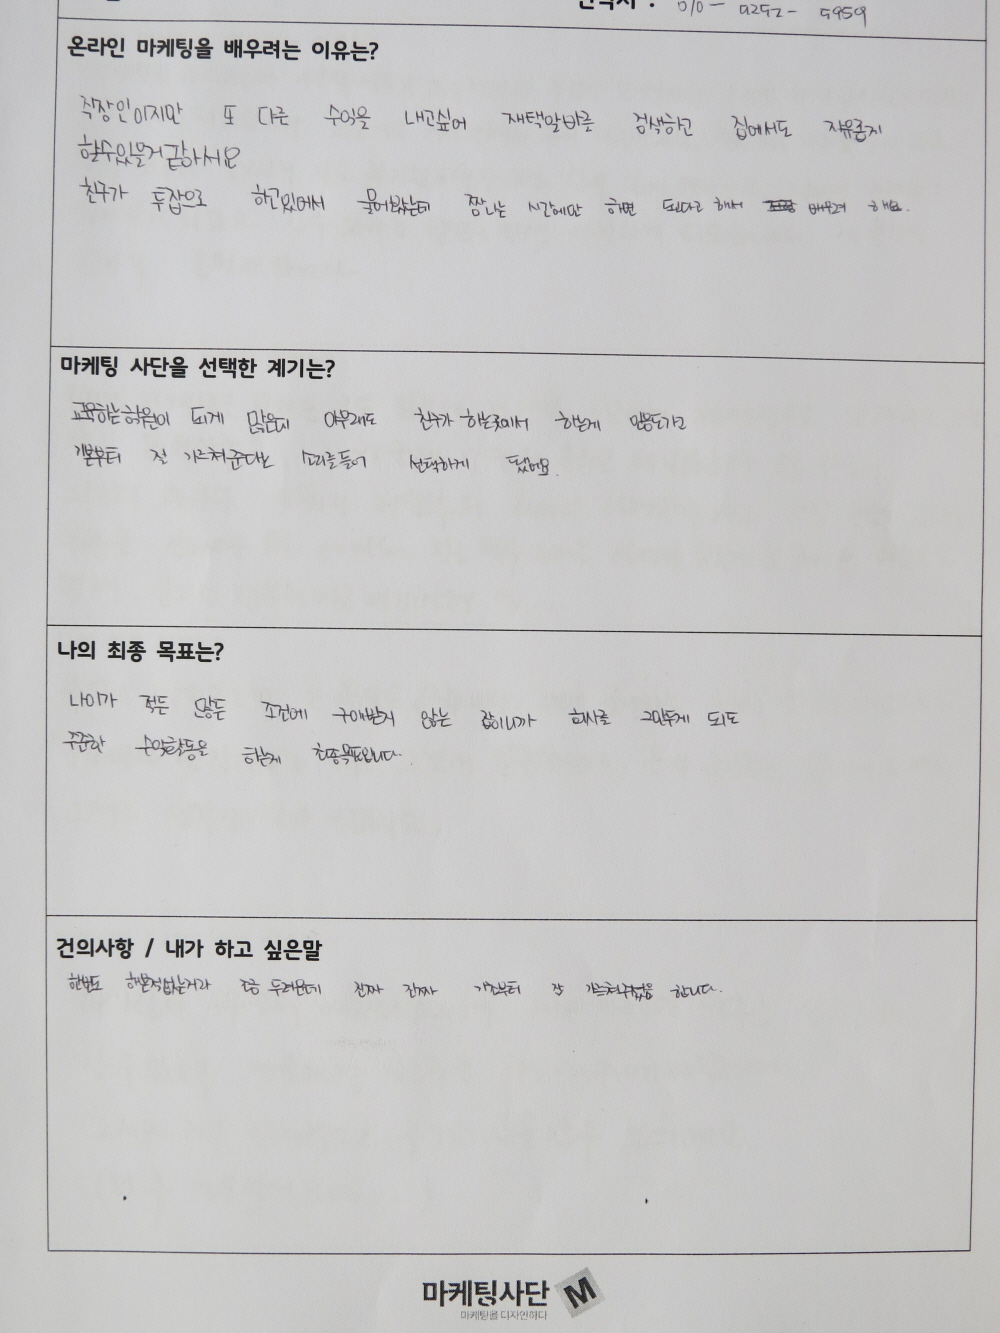 연락처 : 010 - 9292 - 5959
온라인 마케팅을 배우려는 이유는?
직장인이지만 또 다른 수익을 내고싶어 재택알바를 검색하고 집에서도 자유롭게
할수있을거 같아서요
친구가 투잡으로 하고있어서 물어봤는데 짬나는 시간에만 하면 된다고 해서 배우려 해요.
마케팅 사단을 선택한 계기는?
교육하는학원이 되게 많은데 아무래도 친구가 하는곳에서 하는게 믿음도가고
기본부터 잘 가르쳐준다는 소리를들어 선택하게 됐어요.
나의 최종 목표는?
나이가 적든 많든 조건에 구애받지 않는 잡이니까 회사를 그만두게 되도
꾸준한 수익활동을 하는게 최종목표입니다.
건의사항 / 내가 하고 싶은말
한번도 해본적없는거라 조금 두려운데 진짜 진짜 기초부터 잘 가르쳐주셨음 합니다.
마케팅사단 M
마케팅을 디자인하다